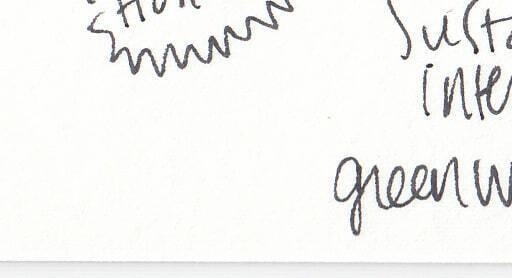 Susta
inte
greenw